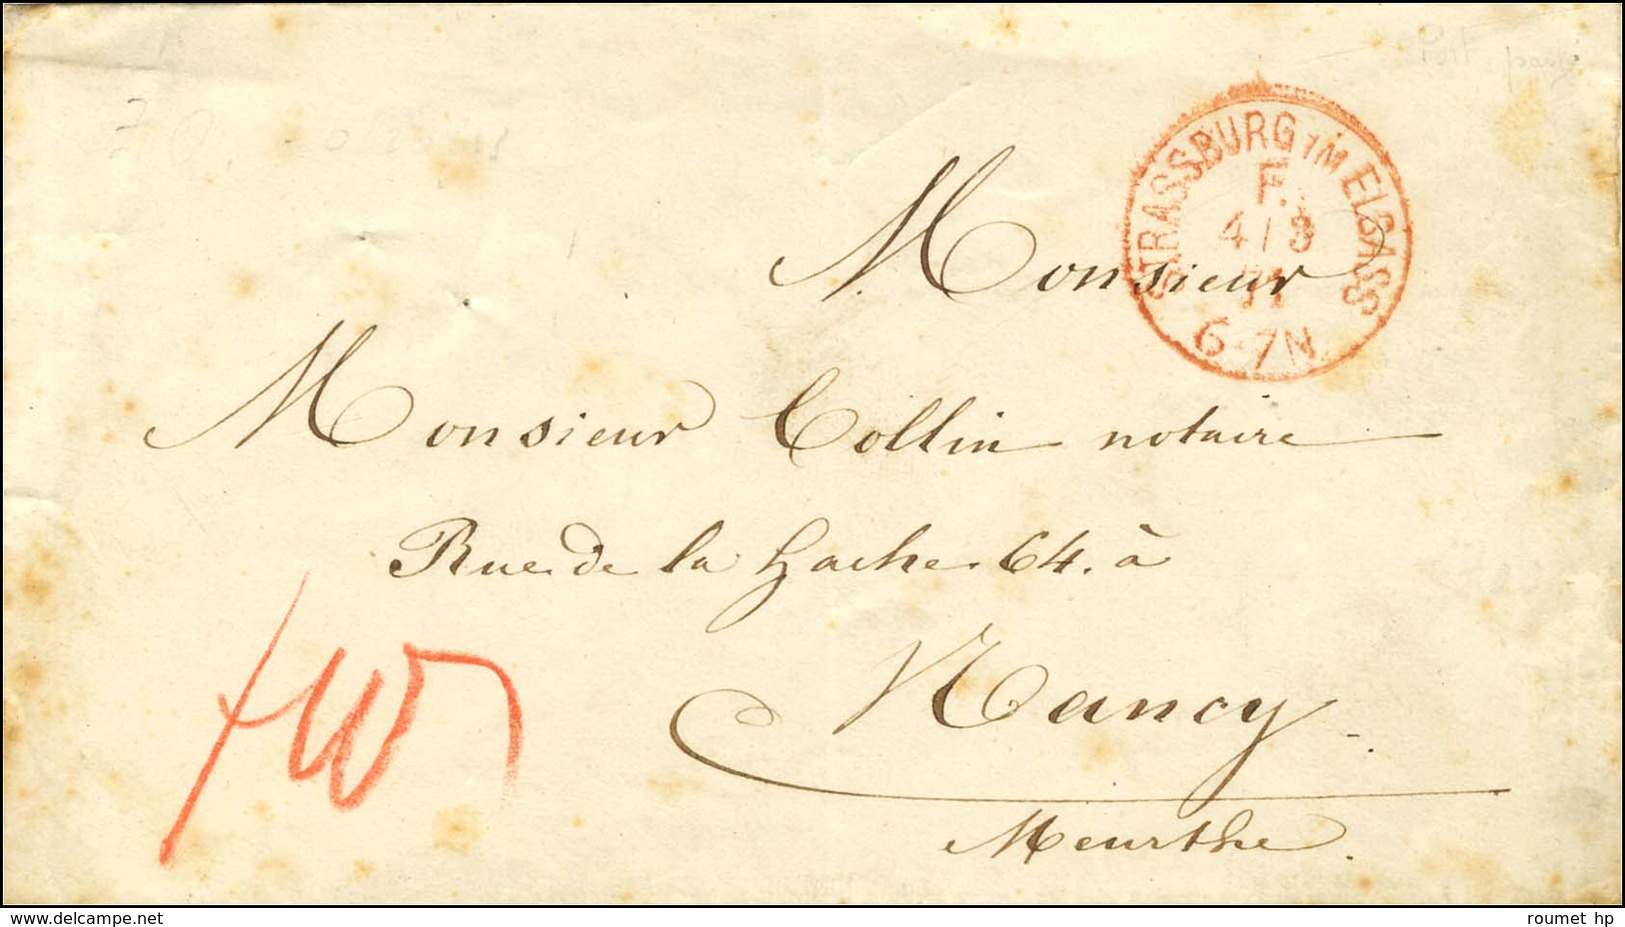 STRASSBURG IM ELSASS
F.
4 / 3
71
6-7N
Monsieur
Monsieur Collin notaire
Rue de la hache 64. à
Nancy
Meurthe.
www.delcampe.net
roumet hp